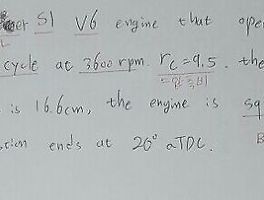 SI V6 engine that ope
L
cycle at 3600 rpm. rc=9.5. the
= 압축비
is 16.6cm, the engine is sq
tion ends at 20° aTDC.
B